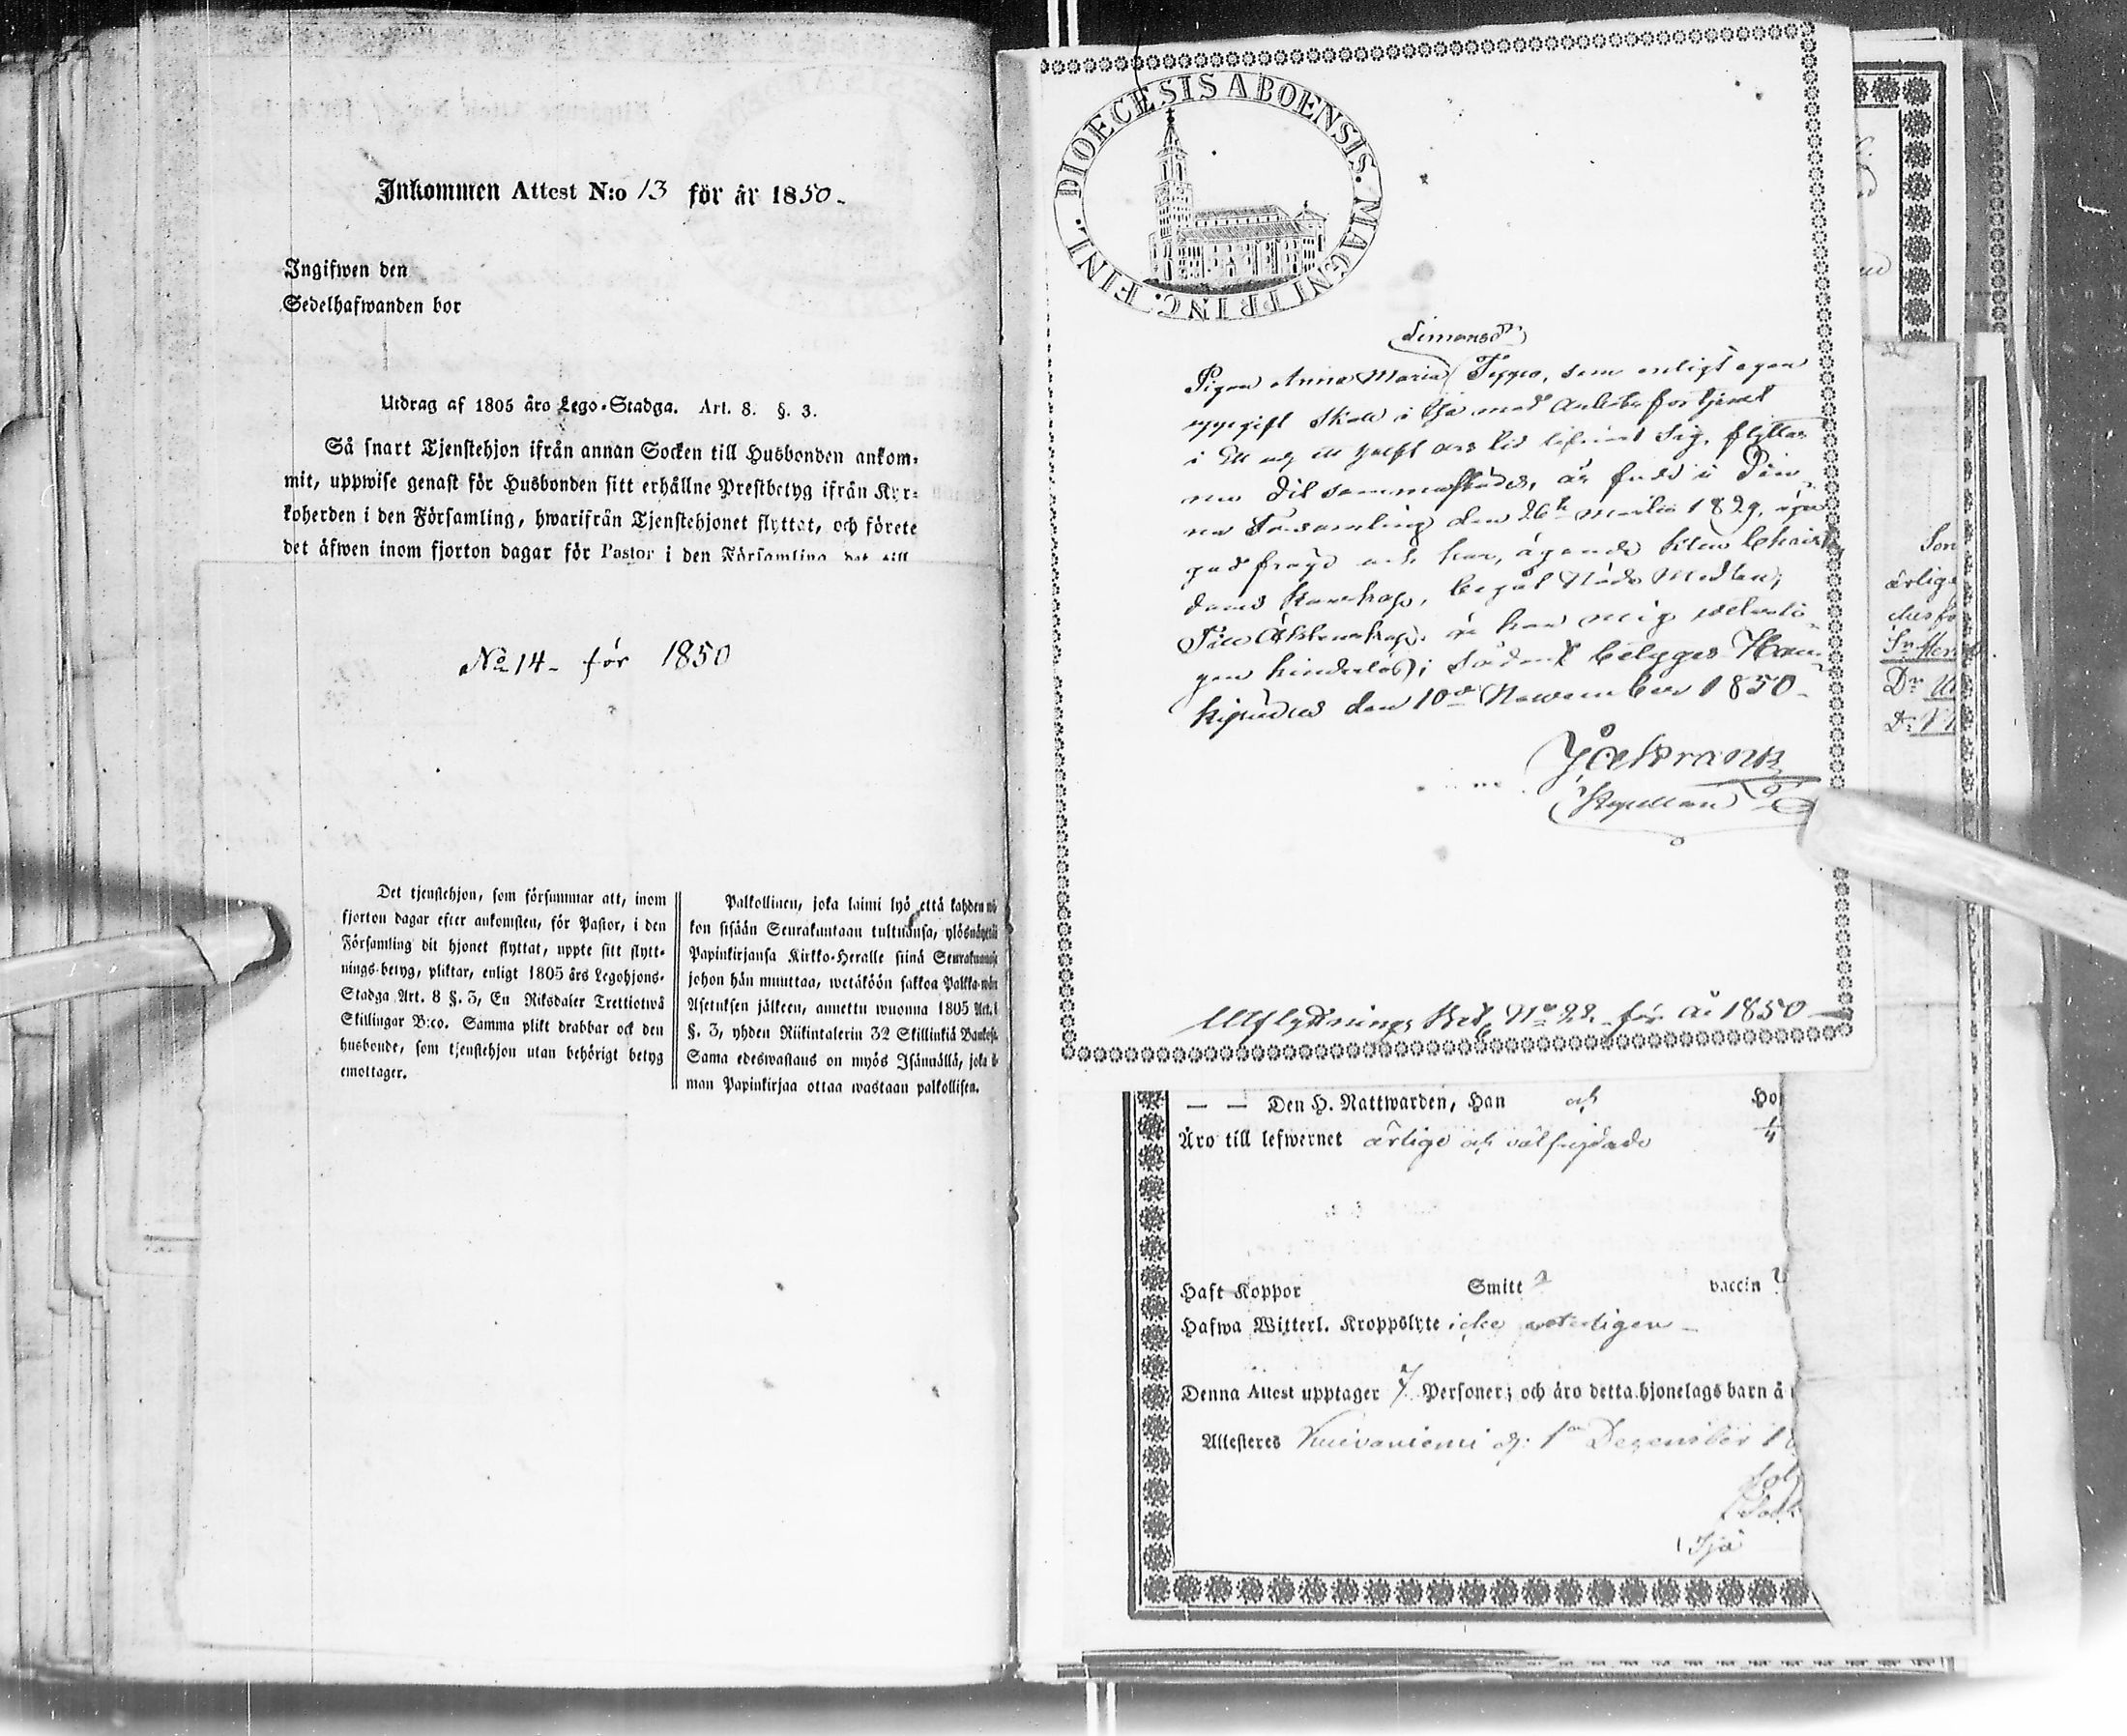 Inkommen Attest N:o 13 för år 1850.
Ingifwen den
Sedelhafwanden bor
Utdrag af 1805 års Lego-Stadga. Art. 8. §. 3.
Så snart Tjenstehjon ifrån annan Socken till Husbonden ankom-
mit, uppwise genast för Husbonden sitt erhållne Prestbetyg ifrån Kyr-
koherden i den Församling, hwarifrån Tjenstehjonet flyttat, och förete
det äfwen inom fjorton dagar för Pastor i den Församling det till
No 14 - för 1850
Det tjenstehjon, som försummar att, inom
fjorton dagar efter ankomsten, för Pastor, i den
Församling dit hjonet flyttat, uppte sitt flytt-
nings-betyg, pliktar, enligt 1805 års Legohjons-
Stadga Art. 8 §. 3, En Riksdaler Trettiotwå
Skillingar B:co. Samma plikt drabbar ock den
husbonde, som tjenstehjon utan behörigt betyg
emottager.
Palkollinen, joka laimi lyö että kahden
kon sisään Seurakuntaan tultuansa, ylösnäyttä
Papinkirjansa Kirkko-Heralle siinä
johon hän muuttaa, wetäköön sakkoa
Asetuksen jälkeen, annettu wuonna 1805 Art.
§. 3, yhden Riikintalerin 32 Skillinkiä
Sama edeswastaus on myös Isännällä, joka
man Papinkirjaa ottaa wastaan palkollisen.
DIOECESIS ABOENSIS. MAGNI PRINC. FINL.
Simonsdr
Pigan Anna Maria Teppo, som enligt egen
uppgift skall i Ijo med arbetsförtjenst
i Ett och ett halft års tid lifnärt sig, flyttar
nu dit sammastädes, är född i den-
na Församling den 26te Martii 1829, äger
god frejd och har, ägande klen Christen-
doms kunskap, begåt Nåde Medlen;
Till Äktenskap är hon mig veterli-
gen hinderlös; Sådant betygas Hau-
kipudas den 10de November 1850.
Kapellan
Utflyttnings Bet. No 22 för år 1850
Den H. Nattwarden, Han och
Äro till lefwernet ärlige och välfrejdade
Haft Koppor Smitt vaccin
Hafwa Witterl. Kroppslyte icke veterligen
Denna Attest upptager 7 Personer; och äro detta hjonelags barn å
Attesteres Kuivaniemi d: 1ta December